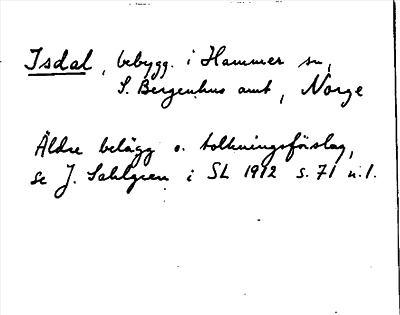 Isdal, bebygg. i Hammer sn,
S. Bergenhus amt, Norge
Äldre belägg o. tolkningsförslag,
se J. Sahlgren i SL 1912 s. 71 n. 1.